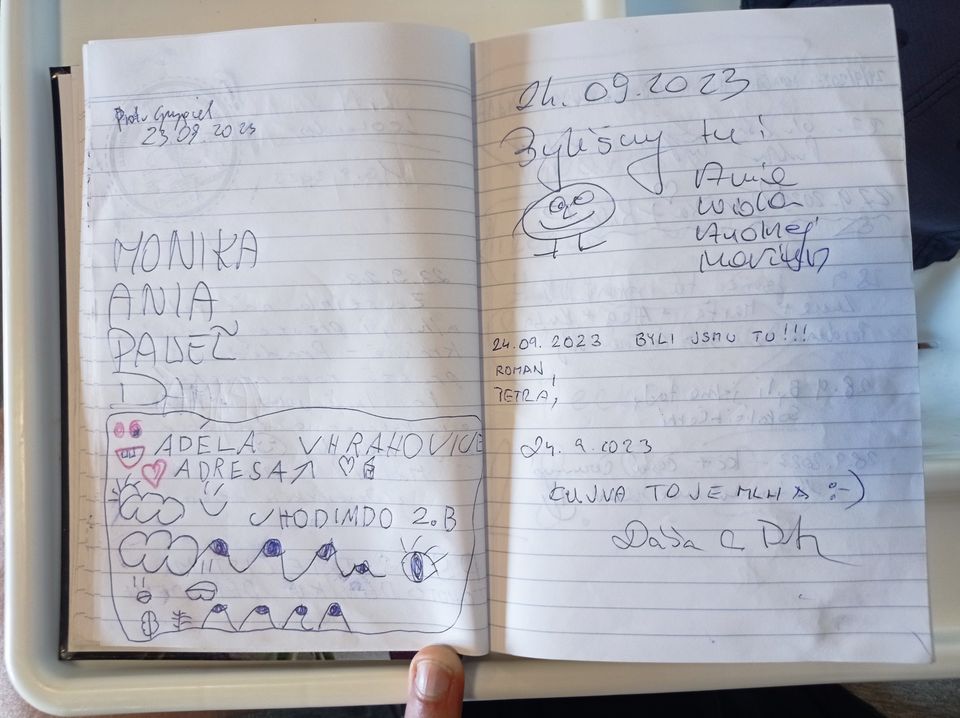 23.09.2023
MONIKA
ANIA
PAWEŁ
ADÉLA VHRAHOVICE
ADRESA
CHODIMDO 2.B
24.09.2023
Byliśmy tu!
Ania
Wiola
Andrzej
24.09.2023 BYLI JSMU TU!!!
ROMAN,
PETRA,
24.9.2023
KUJVA TO JE MLHA :-)
Dáša a